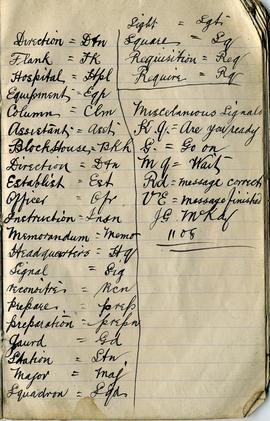 Direction = Dtn
Flank = Fk
Hospital = Hpl
Equipment = Eqp
Column = Clm
Assistant = Asst
Blockhouse = Bkh
Direction = Dtn
Establist = Est
Officer = Ofr
Instruction = Insn
Memorandum = Memo
Headquarters = Hq
Signal = Sig
reconoitre = rcn
prepare = prep
preparation = prepn
Gaurd = Gd
Station = Stn
Major = Maj
Squadron = Sqn
Light = Lgt
Square = Sq
Requisition = Req
Require = Rq
Miscelanous Signals
K Q. = Are you ready
G. = Go on
M Q = Wait
Rd = message correct
VE = message finished
JG
1108